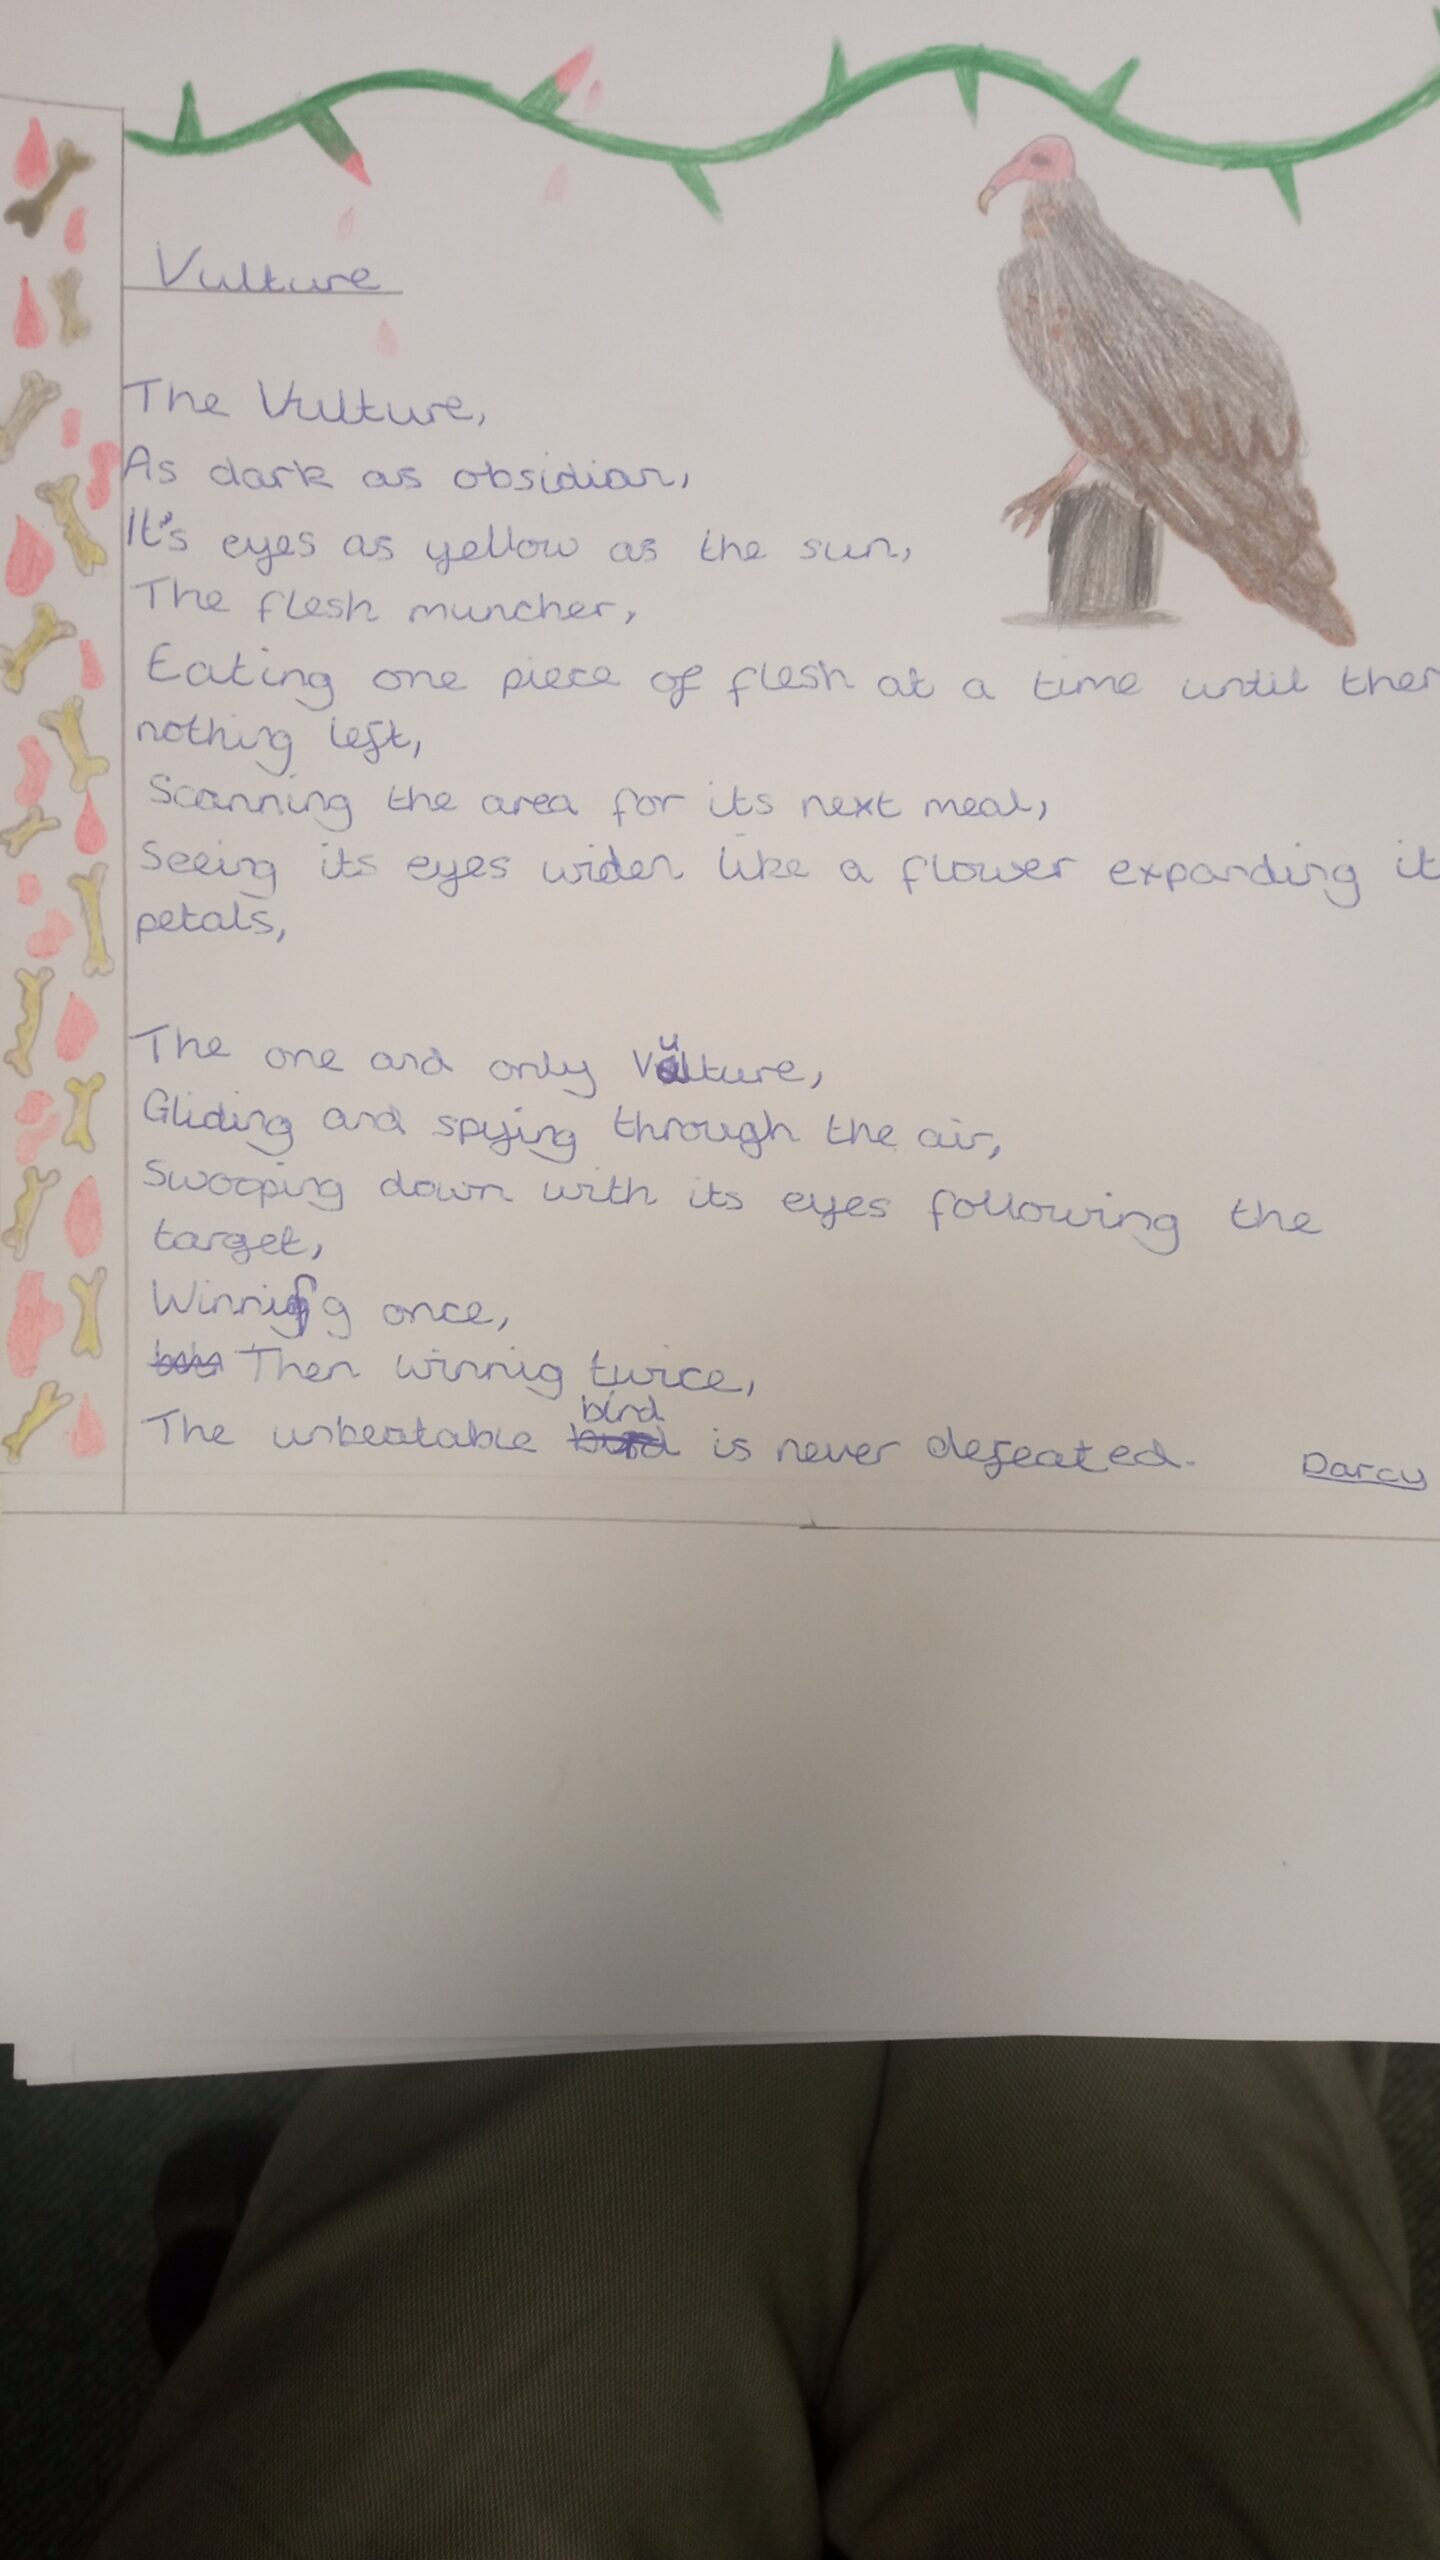 Vulture
The Vulture,
As dark as obsidian,
It's eyes as yellow as the sun,
The flesh muncher,
Eating one piece of flesh at a time until
nothing left,
Scanning the area for its next meal,
Seeing its eyes widen like a flower expanding
petals,
The one and only Vulture,
Gliding and spying through the air,
Swooping down with its eyes following the
target,
Winning once,
Then winnig twice,
The unbeatable bird is never defeated.
Darcy